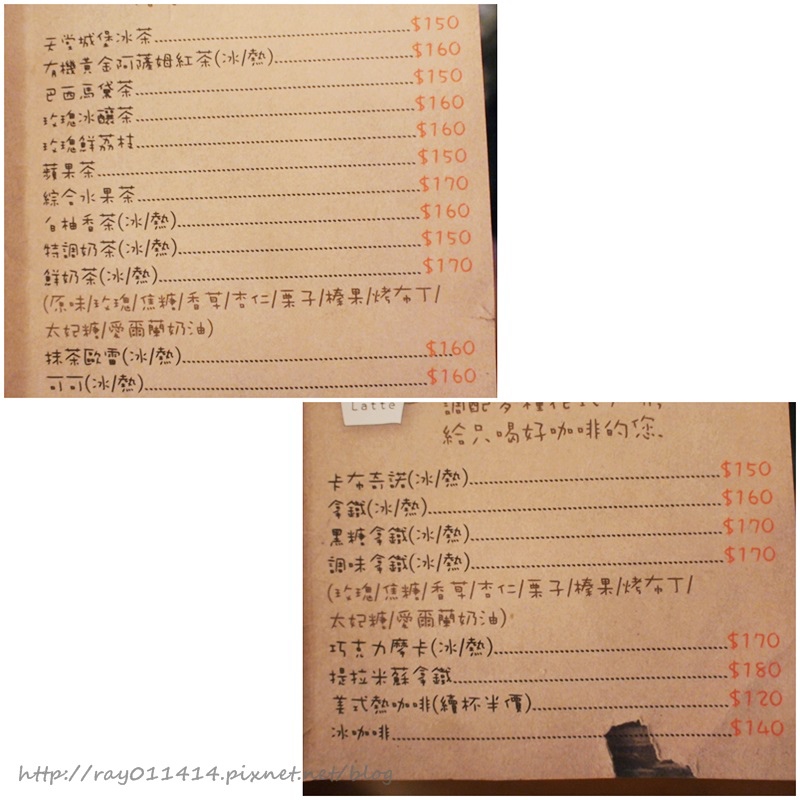 天堂城堡冰茶 $150
有機黃金阿薩姆紅茶(冰/熱) $160
巴西馬黛茶 $150
玫瑰冰釀茶 $160
玫瑰鮮荔枝 $160
蘋果茶 $150
綜合水果茶 $170
白柚香茶(冰/熱) $160
特調奶茶(冰/熱) $150
鮮奶茶(冰/熱) $170
(原味/玫瑰/焦糖/香草/杏仁/栗子/榛果/烤布丁/
太妃糖/愛爾蘭奶油)
抹茶歐蕾(冰/熱) $160
可可(冰/熱) $160
Latte
給只喝好咖啡的您.
卡布奇諾(冰/熱) $150
拿鐵(冰/熱) $160
黑糖拿鐵(冰/熱) $170
調味拿鐵(冰/熱) $170
(玫瑰/焦糖/香草/杏仁/栗子/榛果/烤布丁/
太妃糖/愛爾蘭奶油)
巧克力摩卡(冰/熱) $170
提拉米蘇拿鐵 $180
美式熱咖啡(續杯半價) $120
冰咖啡 $140
http://ray011414.pixnet.net/blog